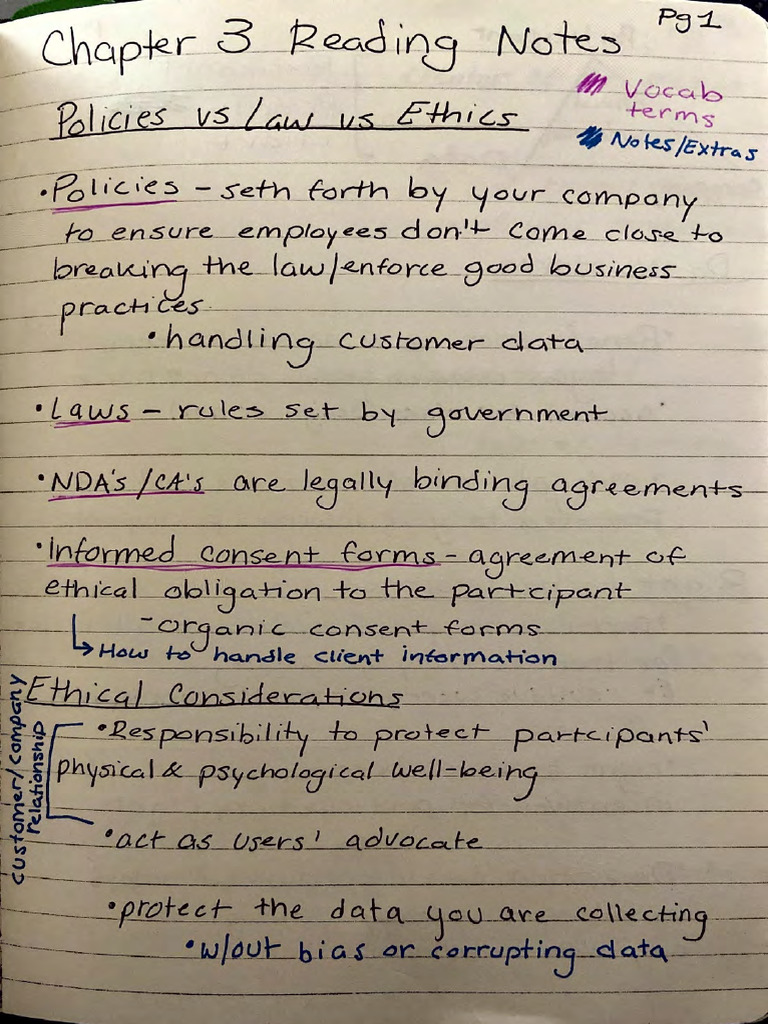 Pg 1
Chapter 3 Reading Notes
Vocab
terms
Policies vs Law vs Ethics
Notes/Extras
•Policies – seth forth by your company
to ensure employees don't come close to
breaking the law/enforce good business
practices
•handling customer data
•Laws – rules set by government
•NDA's/CA's are legally binding agreements
•Informed consent forms – agreement of
ethical obligation to the partcipant
-organic consent forms
↳ How to handle client information
Ethical Considerations
customer/company
relationship
•Responsibility to protect partcipants'
physical & psychological well-being
•act as users' advocate
•protect the data you are collecting
•w/out bias or corrupting data